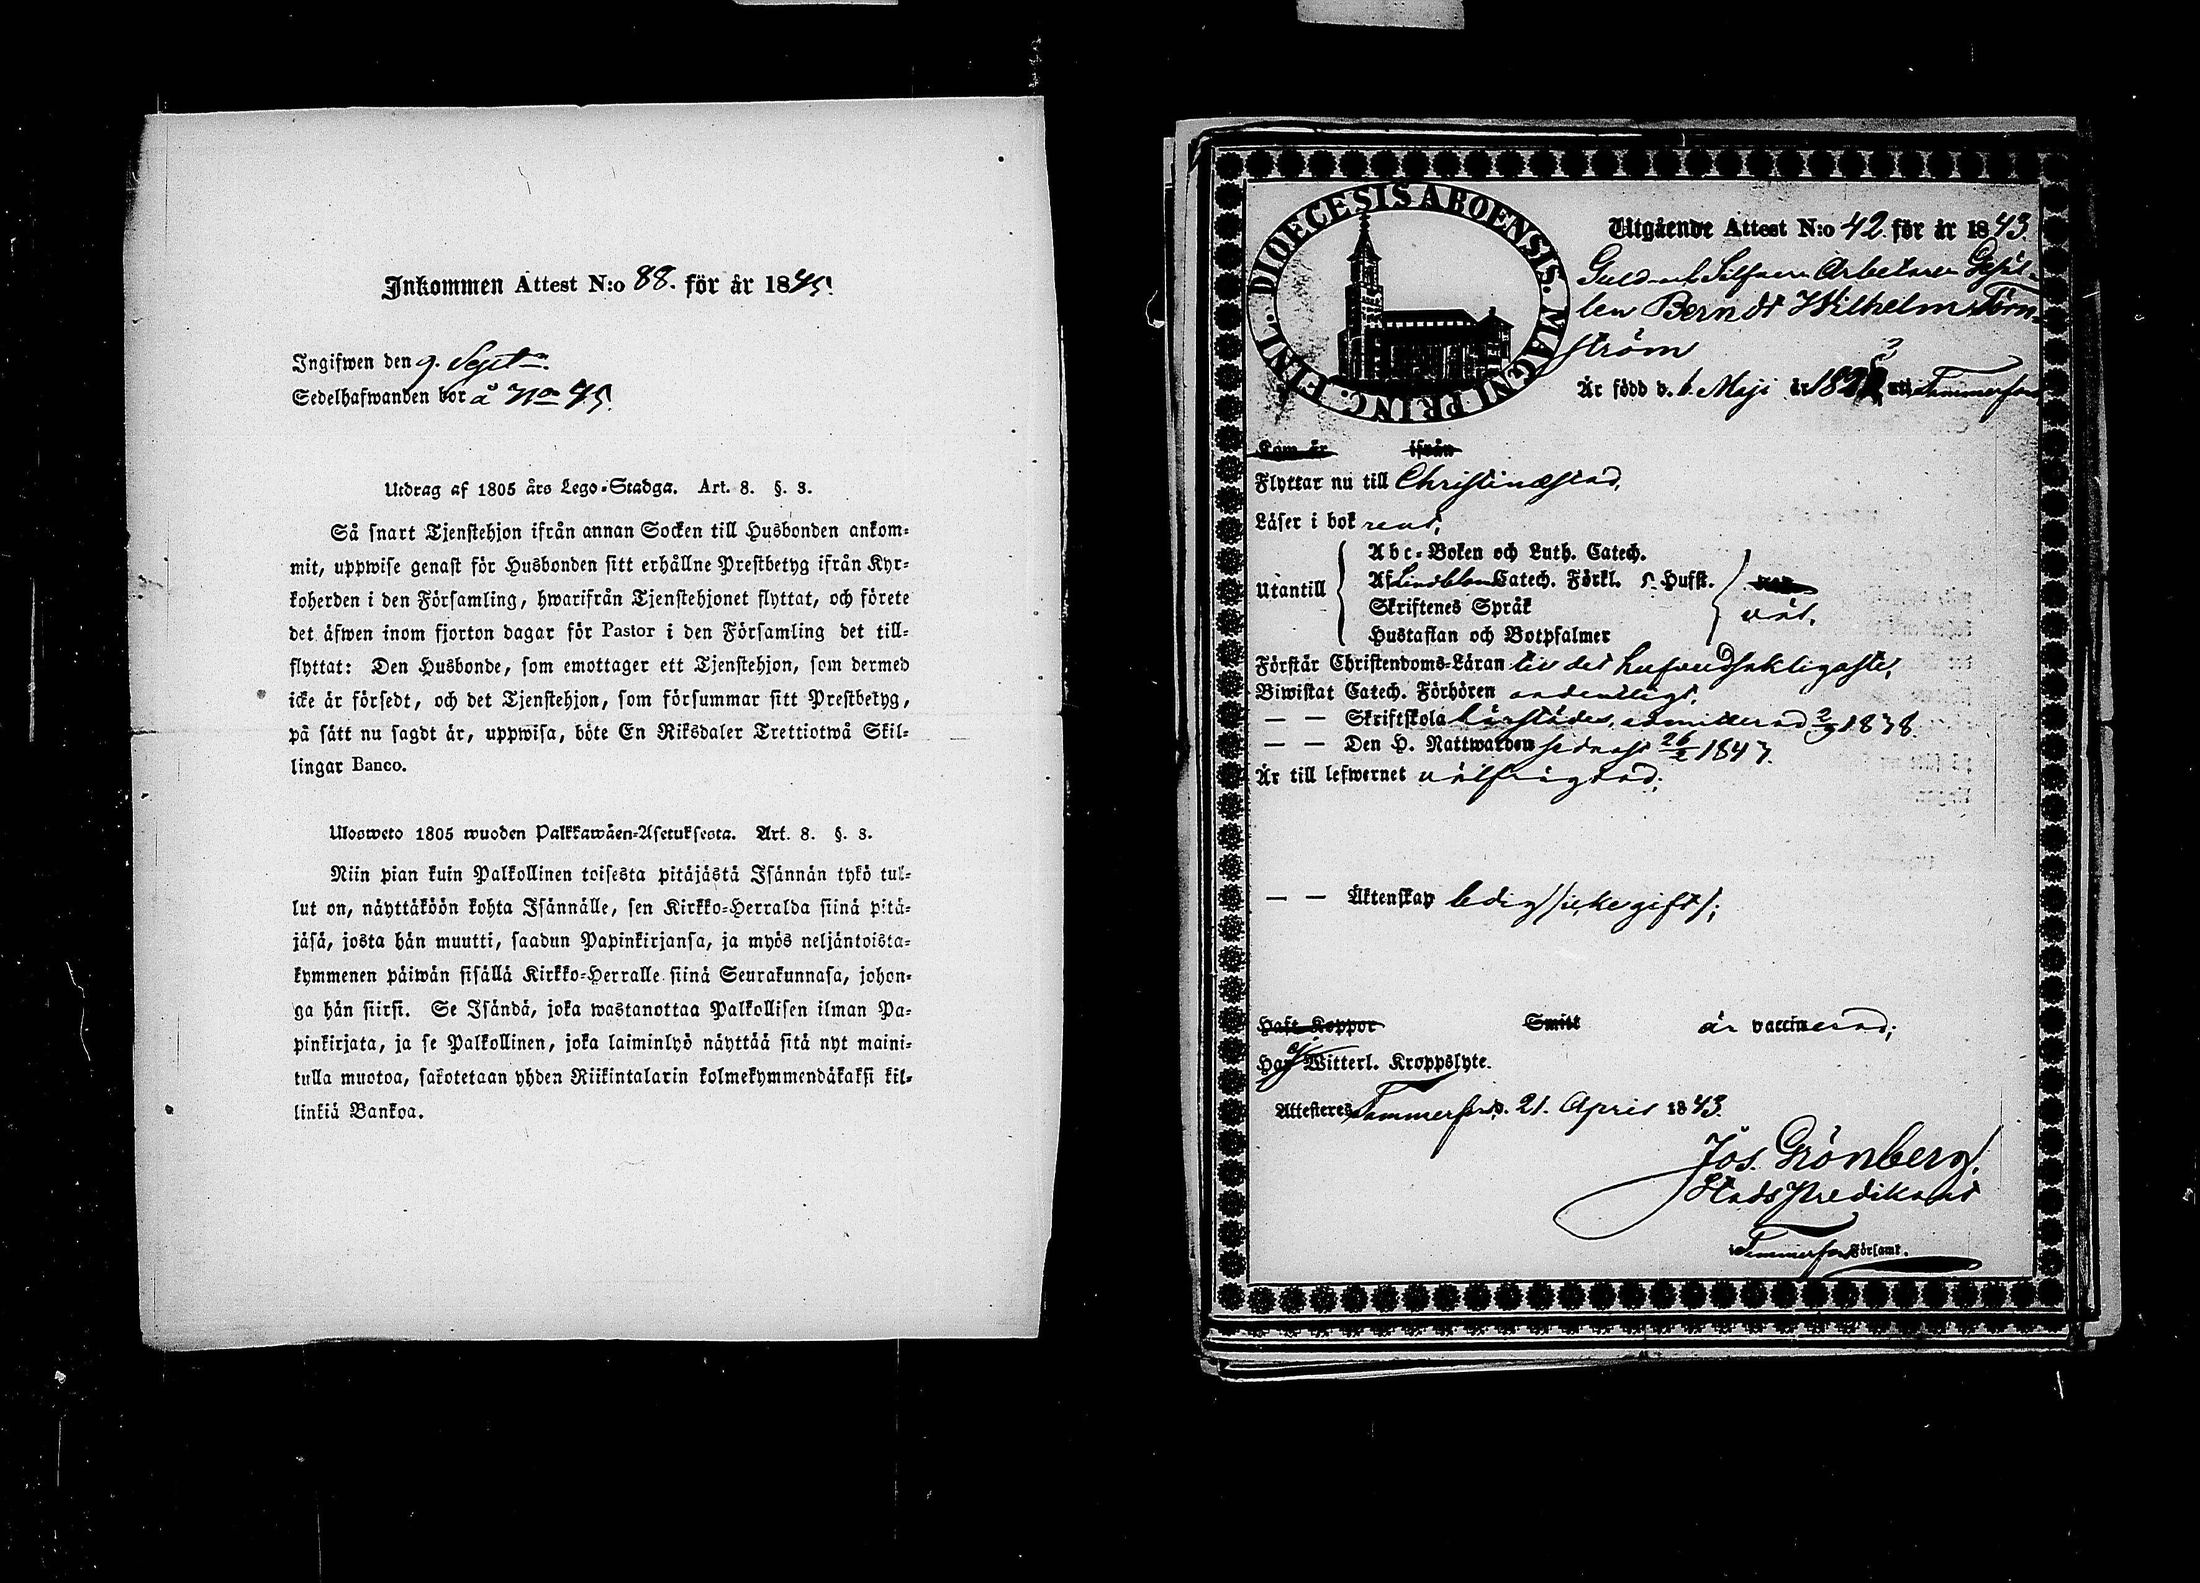 Inkommen Attest N:o 88. för år 1845.
Ingifwen den 9. Sept.
Sedelhafwanden bor å No 45.
Utdrag af 1805 års Lego-Stadga. Art. 8. §. 3.
Så snart Tjenstehjon ifrån annan Socken till Husbonden ankom-
mit, uppwise genast för Husbonden sitt erhållne Prestbetyg ifrån Kyr-
koherden i den Församling, hwarifrån Tjenstehjonet flyttat, och förete
det äfwen inom fjorton dagar för Pastor i den Församling det till-
flyttat: Den Husbonde, som emottager ett Tjenstehjon, som dermed
icke är försedt, och det Tjenstehjon, som försummar sitt Prestbetyg,
på sätt nu sagdt är, uppwisa, böte En Riksdaler Trettiotwå Skil-
lingar Banco.
Ulosweto 1805 wuoden Palkkawäen-Asetuksesta. Art. 8. §. 3.
Niin pian kuin Palkollinen toisesta pitäjästä Isännän tykö tul-
lut on, näyttäköön kohta Isännälle, sen Kirkko-Herralda siinä pitä-
jäsä, josta hän muutti, saadun Papinkirjansa, ja myös neljäntoista-
kymmenen päiwän sisällä Kirkko-Herralle siinä Seurakunnasa, johon-
ga hän siirsi. Se Isändä, joka wastanottaa Palkollisen ilman Pa-
pinkirjata, ja se Palkollinen, joka laiminlyö näyttää sitä nyt maini-
tulla muotoa, sakotetaan yhden Riikintalarin kolmekymmendäkaksi kil-
linkiä Bankoa.
DIOECESIS ABOENSIS. MAGNI PRINC. FINL.
Utgående Attest N:o 42 för år 1843
Guld och Silfver Arbetare Gesäl-
len Berndt Wilhelm Törn-
ström
Är född d. 6. Maji år 1823 uti Tammerfors
Kom år ifrån
Flyttar nu till Christinæstad,
Läser i bok rent,
Abc-Boken och Luth. Catech.
Utantill Af Lindblom Catech. Förkl. s. Husst.
Skriftenes Språk väl.
Hustaflan och Botpsalmer
Förstår Christendoms-Läran till det hufvudsakligaste,
Biwistat Catech. Förhören ordentligt,
— — Skriftskola härstädes, admitterad 1838.
— — Den H. Nattwarden sednast 26/2 1843.
Är till lefwernet välfrägdad;
— — Äktenskap ledig (icke gift);
Haft Koppor Smitt är vaccinerad;
Har ej Witterl. Kroppslyte.
Attesteres Tammerfors d. 21. April 1843.
Jos. Grönberg.
Stads Predikant
i Tammerfors Församl.